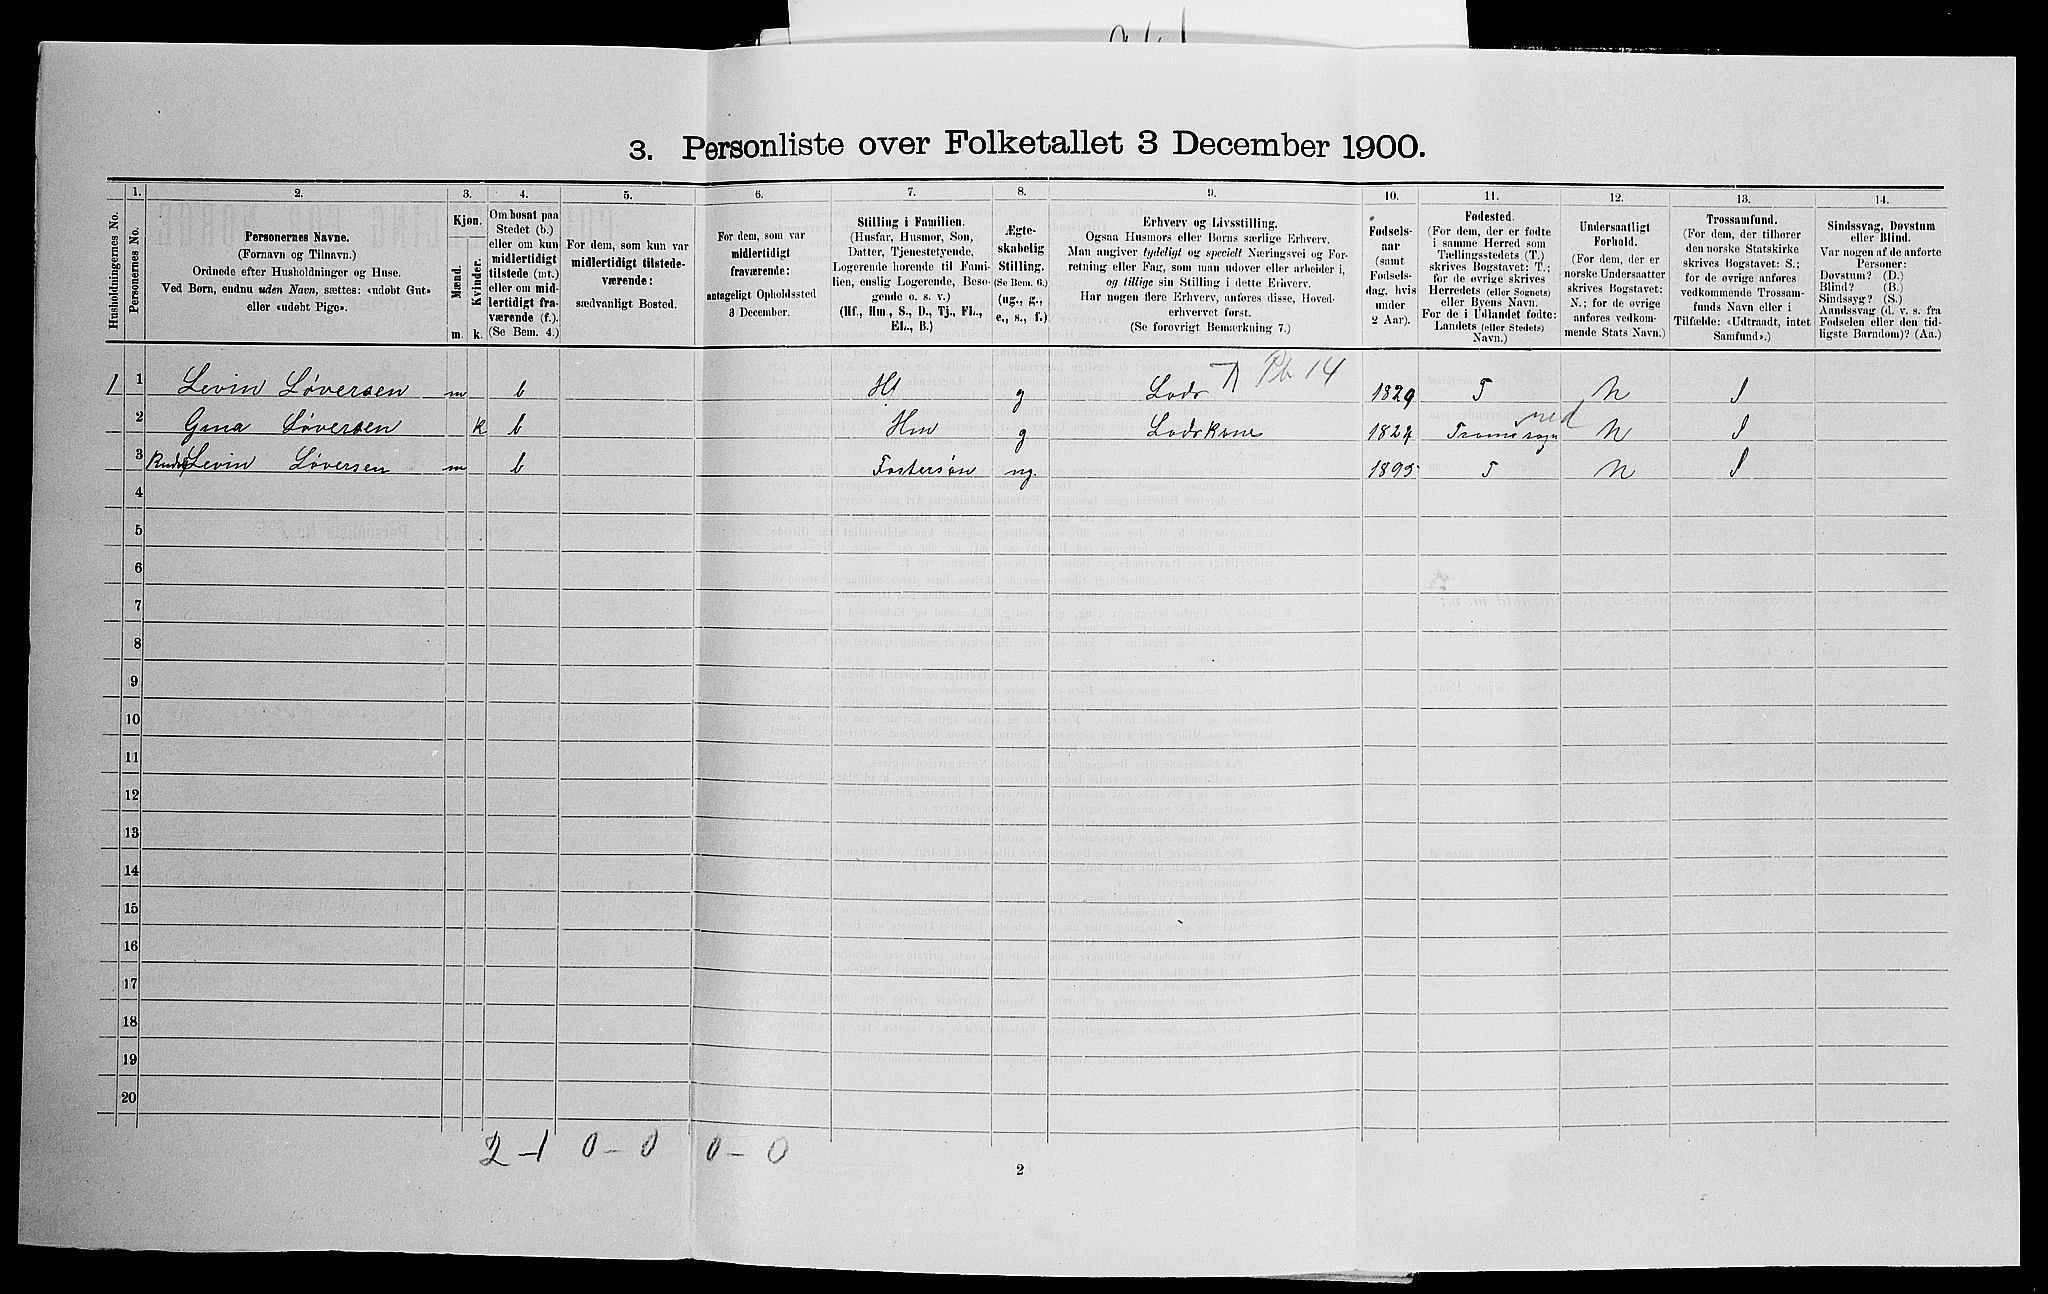 3. Personliste over Folketallet 3 December 1900.
1. 2. 3. 4. 5. 6. 7. 8. 9. 10. 11. 12. 13. 14.
Husholdningernes No.
Personernes No.
Personernes Navne.
(Fornavn og Tilnavn.)
Ordnede efter Husholdninger og Huse.
Ved Børn, endnu uden Navn, sættes: «udøbt Gut»
eller «udøbt Pige».
Kjøn.
Mænd.
Kvinder.
m. k.
Om bosat paa
Stedet (b.)
eller om kun
midlertidigt
tilstede (mt.)
eller om mid-
lertidigt fra-
værende (f.).
(Se Bem. 4.)
For dem, som kun var
midlertidigt tilstede-
værende:
sædvanligt Bosted.
For dem, som var
midlertidigt
fraværende:
antageligt Opholdssted
3 December.
Stilling i Familien.
(Husfar, Husmor, Søn,
Datter, Tjenestetyende,
Logerende hørende til Fami-
lien, enslig Logerende, Besø-
gende o. s. v.)
(Hf., Hm., S., D., Tj., FL.,
EL., B.)
Ægte-
skabelig
Stilling.
(Se Bem. 6.)
(ug., g.,
e., s., f.)
Erhverv og Livsstilling.
Ogsaa Husmors eller Børns særlige Erhverv.
Man angiver tydeligt og specielt Næringsvei og For-
retning eller Fag, som man udøver eller arbeider i,
og tillige sin Stilling i dette Erhverv.
Har nogen flere Erhverv, anføres disse, Hoved-
erhvervet først.
(Se forøvrigt Bemærkning 7.)
Fødsels-
aar
(samt
Fødsels-
dag, hvis
under
2 Aar).
Fødested.
(For dem, der er fødte
i samme Herred som
Tællingsstedets (T.)
skrives Bogstavet: T.;
for de øvrige skrives
Herredets (eller Sognets)
eller Byens Navn.
For de i Udlandet fødte:
Landets (eller Stedets)
Navn.)
Undersaatligt
Forhold.
(For dem, der er
norske Undersaatter
skrives Bogstavet:
N.; for de øvrige
anføres vedkom-
mende Stats Navn.)
Trossamfund.
(For dem, der tilhører
den norske Statskirke
skrives Bogstavet: S.;
for de øvrige anføres
vedkommende Trossam-
funds Navn eller i
Tilfælde: «Udtraadt, intet
Samfund».)
Sindssvag, Døvstum
eller Blind.
Var nogen af de anførte
Personer:
Døvstum? (D.)
Blind? (B.)
Sindssyg? (S.)
Aandssvag (d. v. s. fra
Fødselen eller den tid-
ligste Barndom)? (Aa.)
Pb 14
1 1 Levin Løversen m b Hf g Lods 1829 T N S
ned
2 Gina Løversen k b Hm g Lodskone Tromø sogn N S
3 Levin Løversen m b Fostersøn ug. 1895 T N S
4
5
6
7
8
9
10
11
12
13
14
15
16
17
18
19
20
2-1 0-0 0-0
2